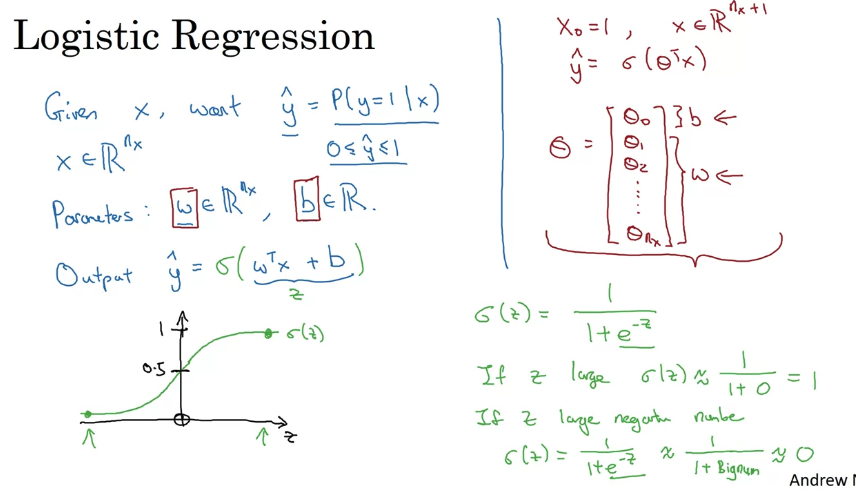 Logistic Regression
Given x, want ŷ = P(y=1|x)
x ∈ ℝ^{n_x}
0 ≤ ŷ ≤ 1
Parameters: w ∈ ℝ^{n_x}, b ∈ ℝ.
Output ŷ = σ(w^T x + b)
z
1
σ(z)
0.5
z
x_0 = 1, x ∈ ℝ^{n_x+1}
ŷ = σ(θ^T x)
θ = [θ_0 θ_1 θ_2 ⋮ θ_{n_x}]
} b ←
} w ←
σ(z) = 1 / (1 + e^{-z})
If z large σ(z) ≈ 1 / (1 + 0) = 1
If z large negative number
σ(z) = 1 / (1 + e^{-z}) ≈ 1 / (1 + Bignum) ≈ 0
Andrew N